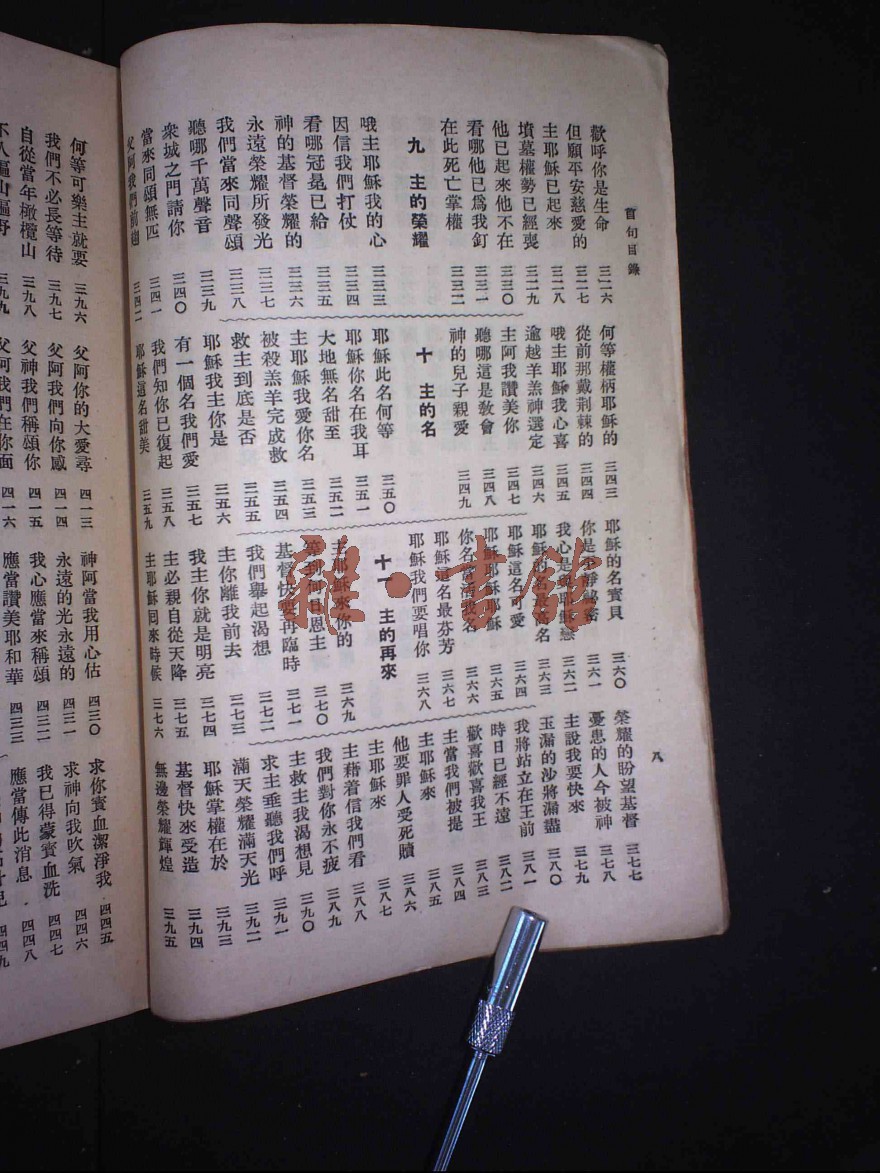 首句目錄
八
歡呼你是生命 三二六
但願平安慈愛的 三二七
主耶穌已起來 三二八
墳墓權勢已經喪 三二九
他已起來他不在 三三〇
看哪他已爲我釘 三三一
在此死亡掌權 三三二
九 主的榮耀
哦主耶穌我的心 三三三
因信我們打仗 三三四
看哪冠冕已給 三三五
神的基督榮耀的 三三六
永遠榮耀所發光 三三七
我們當來同聲頌 三三八
聽哪千萬聲音 三三九
衆城之門請你 三四〇
當來同頌無匹 三四一
父阿我們前趨 三四二
何等權柄耶穌的 三四三
從前那戴荆棘的 三四四
哦主耶穌我心喜 三四五
逾越羊羔神選定 三四六
主阿我讚美你 三四七
聽哪這是教會 三四八
神的兒子親愛 三四九
十 主的名
耶穌此名何等 三五〇
耶穌你名在我耳 三五一
大地無名甜至 三五二
主耶穌我愛你名 三五三
被殺羔羊完成救 三五四
救主到底是否 三五五
耶穌我主你是 三五六
有一個名我們愛 三五七
我們知你已復起 三五八
耶穌這名甜美 三五九
耶穌的名寶貝 三六〇
你是 三六一
我心是 耶穌 三六二
耶穌的名最 名 三六三
耶穌這名可愛 三六四
耶穌耶穌耶穌 三六五
你名 名 三六六
耶穌這名最芬芳 三六七
耶穌我們要唱你 三六八
十一 主的再來
主耶穌來你的 三六九
等到何日恩主 三七〇
基督快要再臨時 三七一
我們舉起渴想 三七二
主你離我前去 三七三
我主你就是明亮 三七四
主必親自從天降 三七五
主耶穌回來時候 三七六
榮耀的盼望基督 三七七
憂患的人今被神 三七八
主說我要快來 三七九
玉漏的沙將漏盡 三八〇
我將站立在王前 三八一
時日已經不遠 三八二
歡喜歡喜我王 三八三
主當我們被提 三八四
主耶穌來 三八五
他要罪人受死贖 三八六
主耶穌來 三八七
主藉着信我們看 三八八
我們對你永不疲 三八九
主救主我渴想見 三九〇
求主垂聽我們呼 三九一
滿天榮耀滿天光 三九二
耶穌掌權在於 三九三
基督快來受造 三九四
無邊榮耀輝煌 三九五
何等可樂主就要 三九六
我們不必長等待 三九七
自從當年橄欖山 三九八
三九九
父阿你的大愛尋 四一三
父阿我們向你感 四一四
父神我們稱頌你 四一五
父阿我們在你面 四一六
神阿當我用心估 四三〇
永遠的光永遠的 四三一
我心應當來稱頌 四三二
應當讚美耶和華 四三三
求你寶血潔淨我 四四五
求神向我吹氣 四四六
我已得蒙寶血洗 四四七
應當傳此消息 四四八
四四九
雜·書館